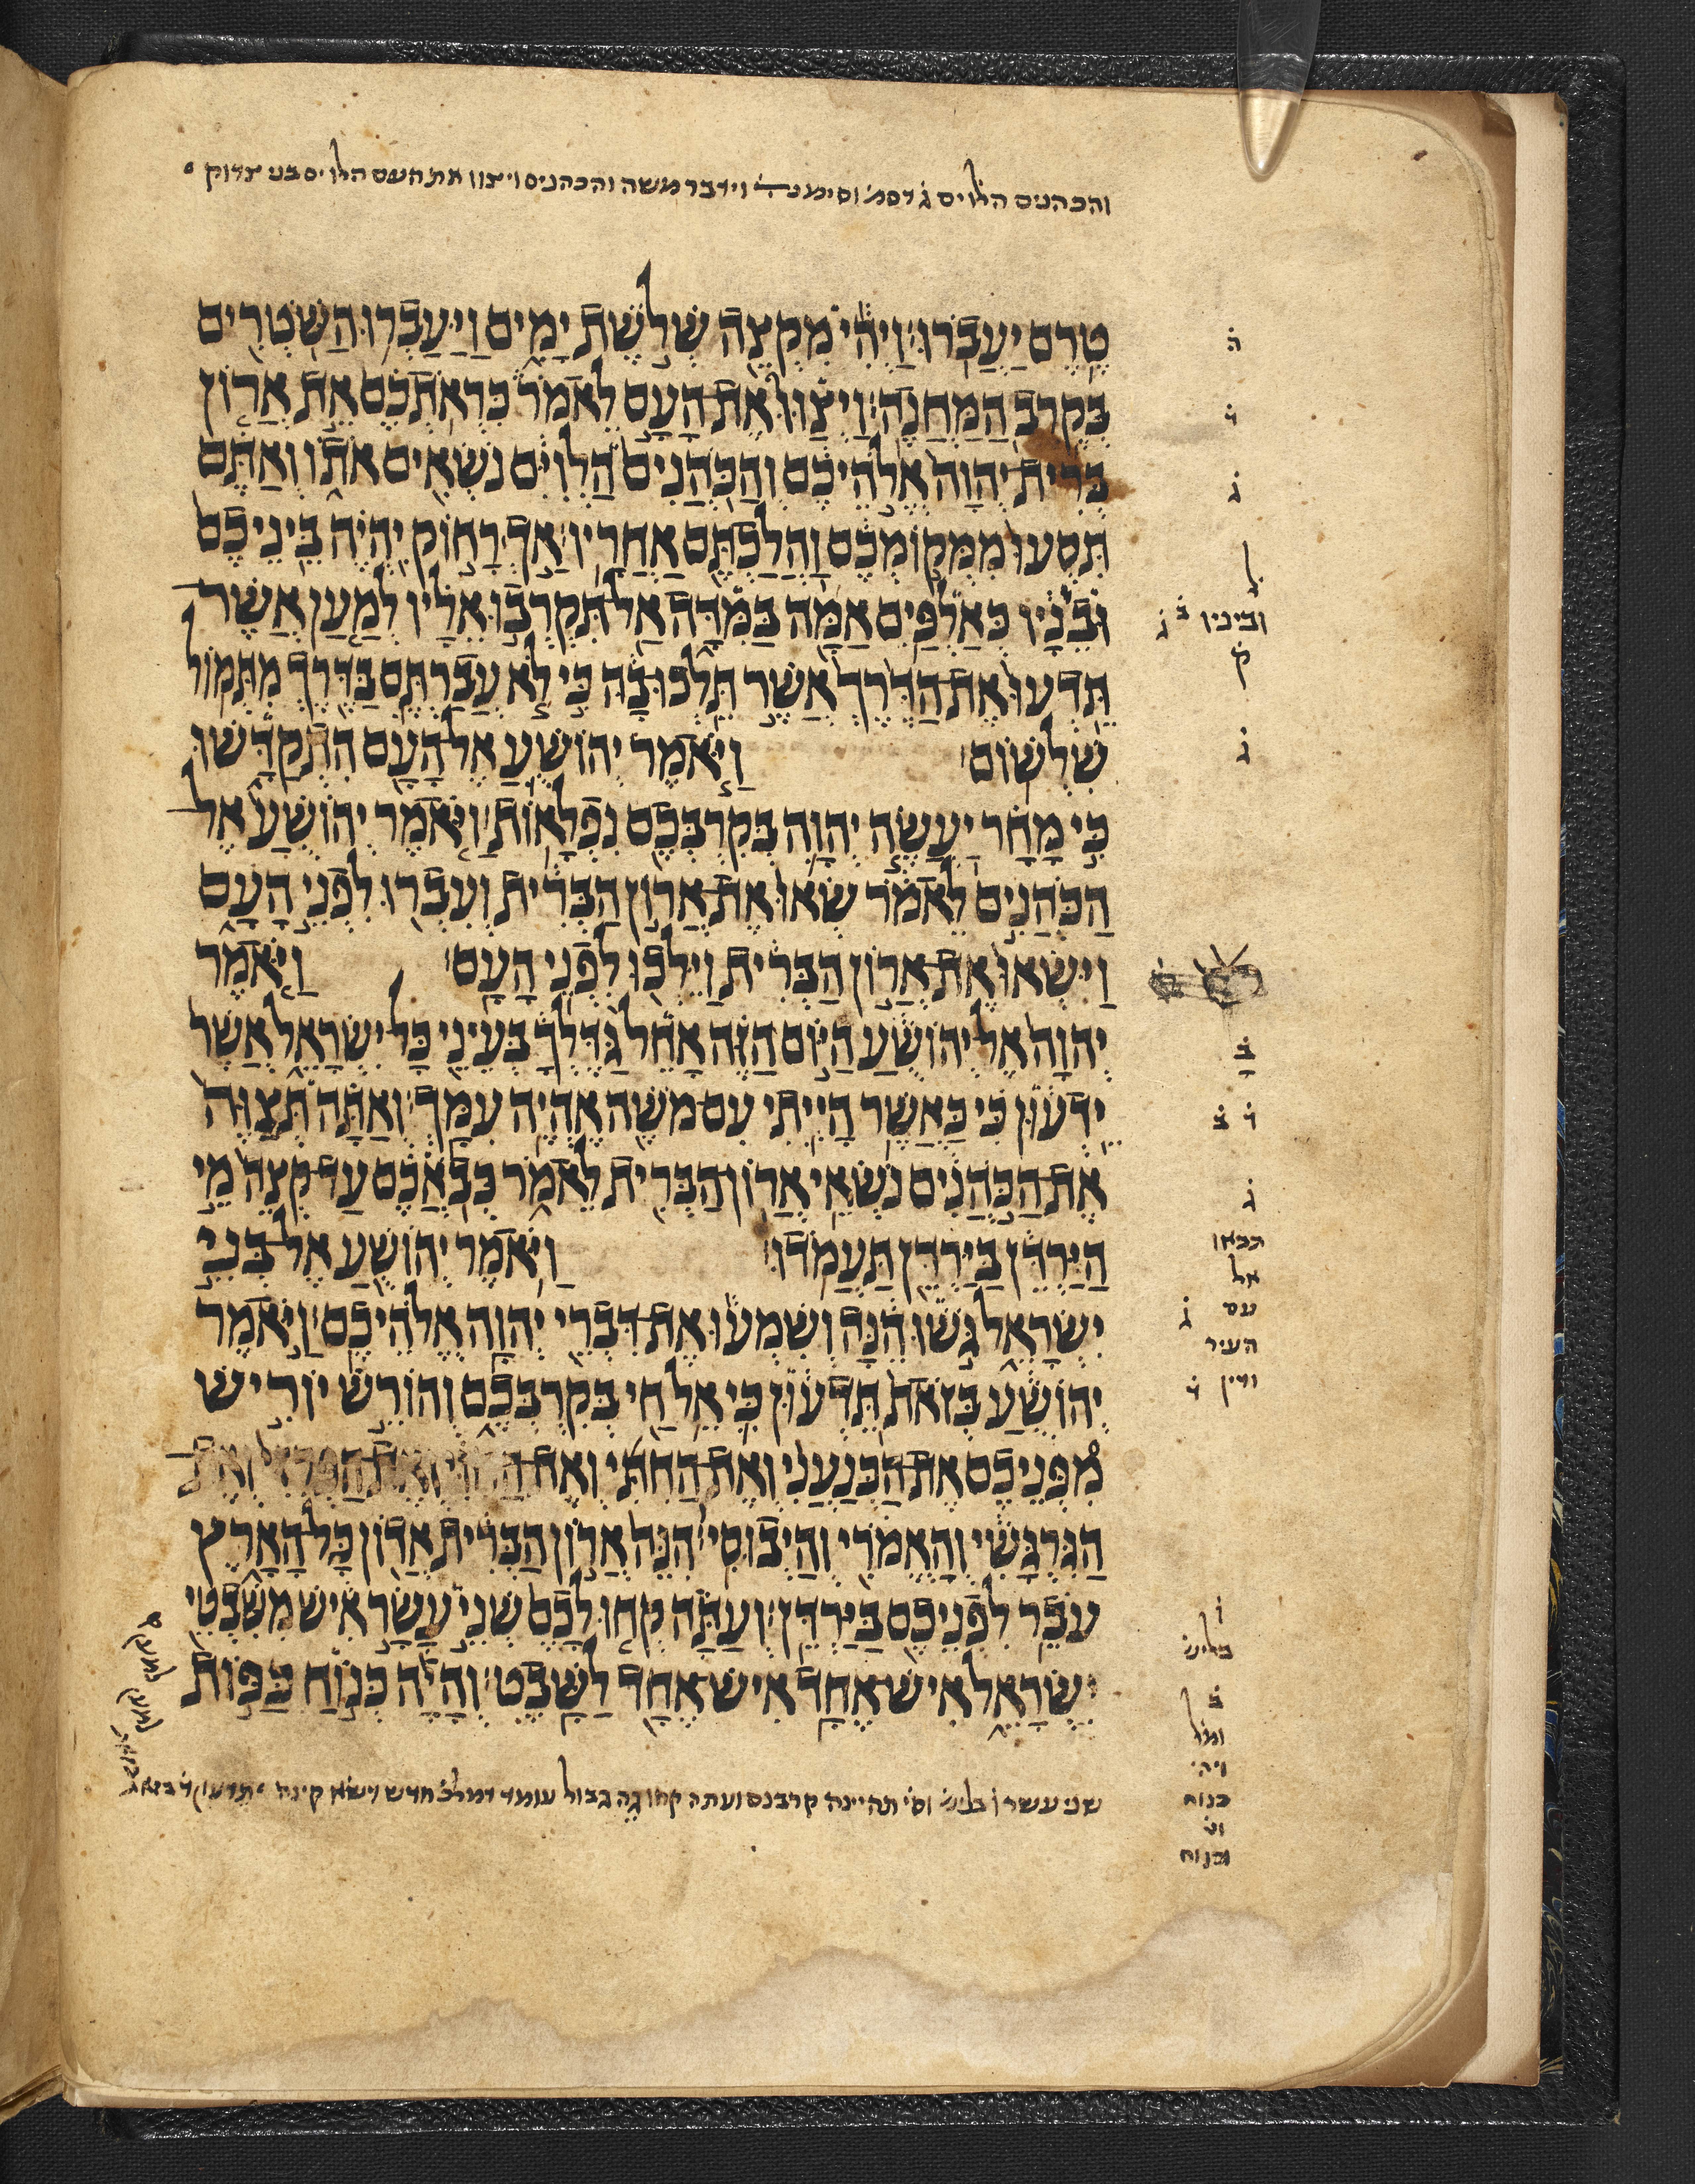 והכהנים הלוים ג̇ דסמ׳ וידבר משה והכהנים ויצוו את העם הלוים בני צדוק
טֶרֶם יַעֲבֹרוּ׃ וַיְהִי מִקְצֵה שְׁלֹשֶׁת יָמִים וַיַּעַבְרוּ הַשֹּׁטְרִים
בְּקֶרֶב הַמַּחֲנֶה׃ וַיְצַוּוּ אֶת־הָעָם לֵאמֹר כִּרְאֹתְכֶם אֵת אֲרוֹן
בְּרִית יְהוָה אֱלֹהֵיכֶם וְהַכֹּהֲנִים הַלְוִיִּם נֹשְׂאִים אֹתוֹ וְאַתֶּם
תִּסְעוּ מִמְּקוֹמְכֶם וַהֲלַכְתֶּם אַחֲרָיו׃ אַךְ רָחוֹק יִהְיֶה בֵּינֵיכֶם
וּבֵנָיו כְּאַלְפַּיִם אַמָּה בַּמִּדָּה אַל־תִּקְרְבוּ אֵלָיו לְמַעַן אֲשֶׁר־
תֵּדְעוּ אֶת־הַדֶּרֶךְ אֲשֶׁר תֵּלְכוּ־בָהּ כִּי לֹא עֲבַרְתֶּם בַּדֶּרֶךְ מִתְּמוֹל
שִׁלְשׁוֹם׃ וַיֹּאמֶר יְהוֹשֻׁעַ אֶל־הָעָם הִתְקַדָּשׁוּ
כִּי מָחָר יַעֲשֶׂה יְהוָה בְּקִרְבְּכֶם נִפְלָאוֹת׃ וַיֹּאמֶר יְהוֹשֻׁעַ אֶל־
הַכֹּהֲנִים לֵאמֹר שְׂאוּ אֶת־אֲרוֹן הַבְּרִית וְעִבְרוּ לִפְנֵי הָעָם
וַיִּשְׂאוּ אֶת־אֲרוֹן הַבְּרִית וַיֵּלְכוּ לִפְנֵי הָעָם׃ וַיֹּאמֶר
יְהוָה אֶל־יְהוֹשֻׁעַ הַיּוֹם הַזֶּה אָחֵל גַּדֶּלְךָ בְּעֵינֵי כָּל־יִשְׂרָאֵל אֲשֶׁר
יֵדְעוּן כִּי כַּאֲשֶׁר הָיִיתִי עִם־מֹשֶׁה אֶהְיֶה עִמָּךְ׃ וְאַתָּה תְּצַוֶּה
אֶת־הַכֹּהֲנִים נֹשְׂאֵי אֲרוֹן־הַבְּרִית לֵאמֹר כְּבֹאֲכֶם עַד־קְצֵה מֵי
הַיַּרְדֵּן בַּיַּרְדֵּן תַּעֲמֹדוּ׃ וַיֹּאמֶר יְהוֹשֻׁעַ אֶל־בְּנֵי
יִשְׂרָאֵל גֹּשׁוּ הֵנָּה וְשִׁמְעוּ אֶת־דִּבְרֵי יְהוָה אֱלֹהֵיכֶם׃ וַיֹּאמֶר
יְהוֹשֻׁעַ בְּזֹאת תֵּדְעוּן כִּי אֵל חַי בְּקִרְבְּכֶם וְהוֹרֵשׁ יוֹרִישׁ
מִפְּנֵיכֶם אֶת־הַכְּנַעֲנִי וְאֶת־הַחִתִּי וְאֶת־הַחִוִּי וְאֶת־הַפְּרִזִּי וְאֶת־
הַגִּרְגָּשִׁי וְהָאֱמֹרִי וְהַיְבוּסִי׃ הִנֵּה אֲרוֹן הַבְּרִית אֲדוֹן כָּל־הָאָרֶץ
עֹבֵר לִפְנֵיכֶם בַּיַּרְדֵּן׃ וְעַתָּה קְחוּ לָכֶם שְׁנֵי עָשָׂר אִישׁ מִשִּׁבְטֵי
יִשְׂרָאֵל אִישׁ־אֶחָד אִישׁ־אֶחָד לַשָּׁבֶט׃ וְהָיָה כְּנוֹחַ כַּפּוֹת
שני עשר ו̇ בליש׳ וס׳ תהיינה קרבנם ועתה קחו גבול עומד חדש וישא קינה תדעון ד̇ בזאת
ה̇
ד̇
ג̇
ל̇
וביניו ב̇ ג̇
ק̇
ג̇
ב̇
ד̇ ב̇
ג̇
תבאו
אל
עם ג̇
העיר
ודין ד̇
ו̇
בליש׳
ב̇
ויהי
כנוח
וכנוח